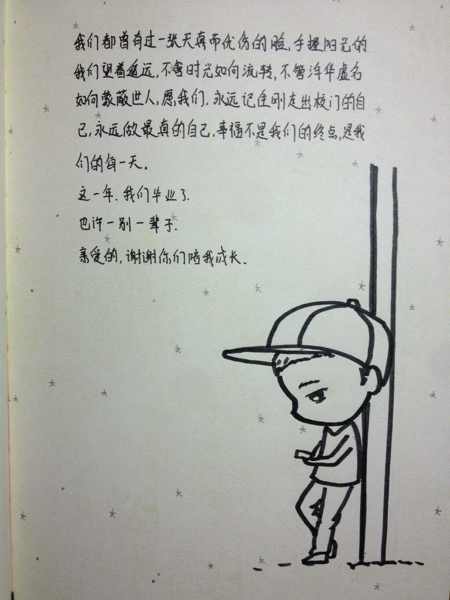 我们都曾有过一张天真而忧伤的脸,手握阳光的
我们望着遥远,不管时光如何流转,不管浮华虚名
如何蒙蔽世人,愿我们,永远记住刚走出校门的自
己,永远做最真的自己,幸福不是我们的终点,是我
们的每一天。
这一年,我们毕业了.
也许一别一辈子.
亲爱的,谢谢你们陪我成长.